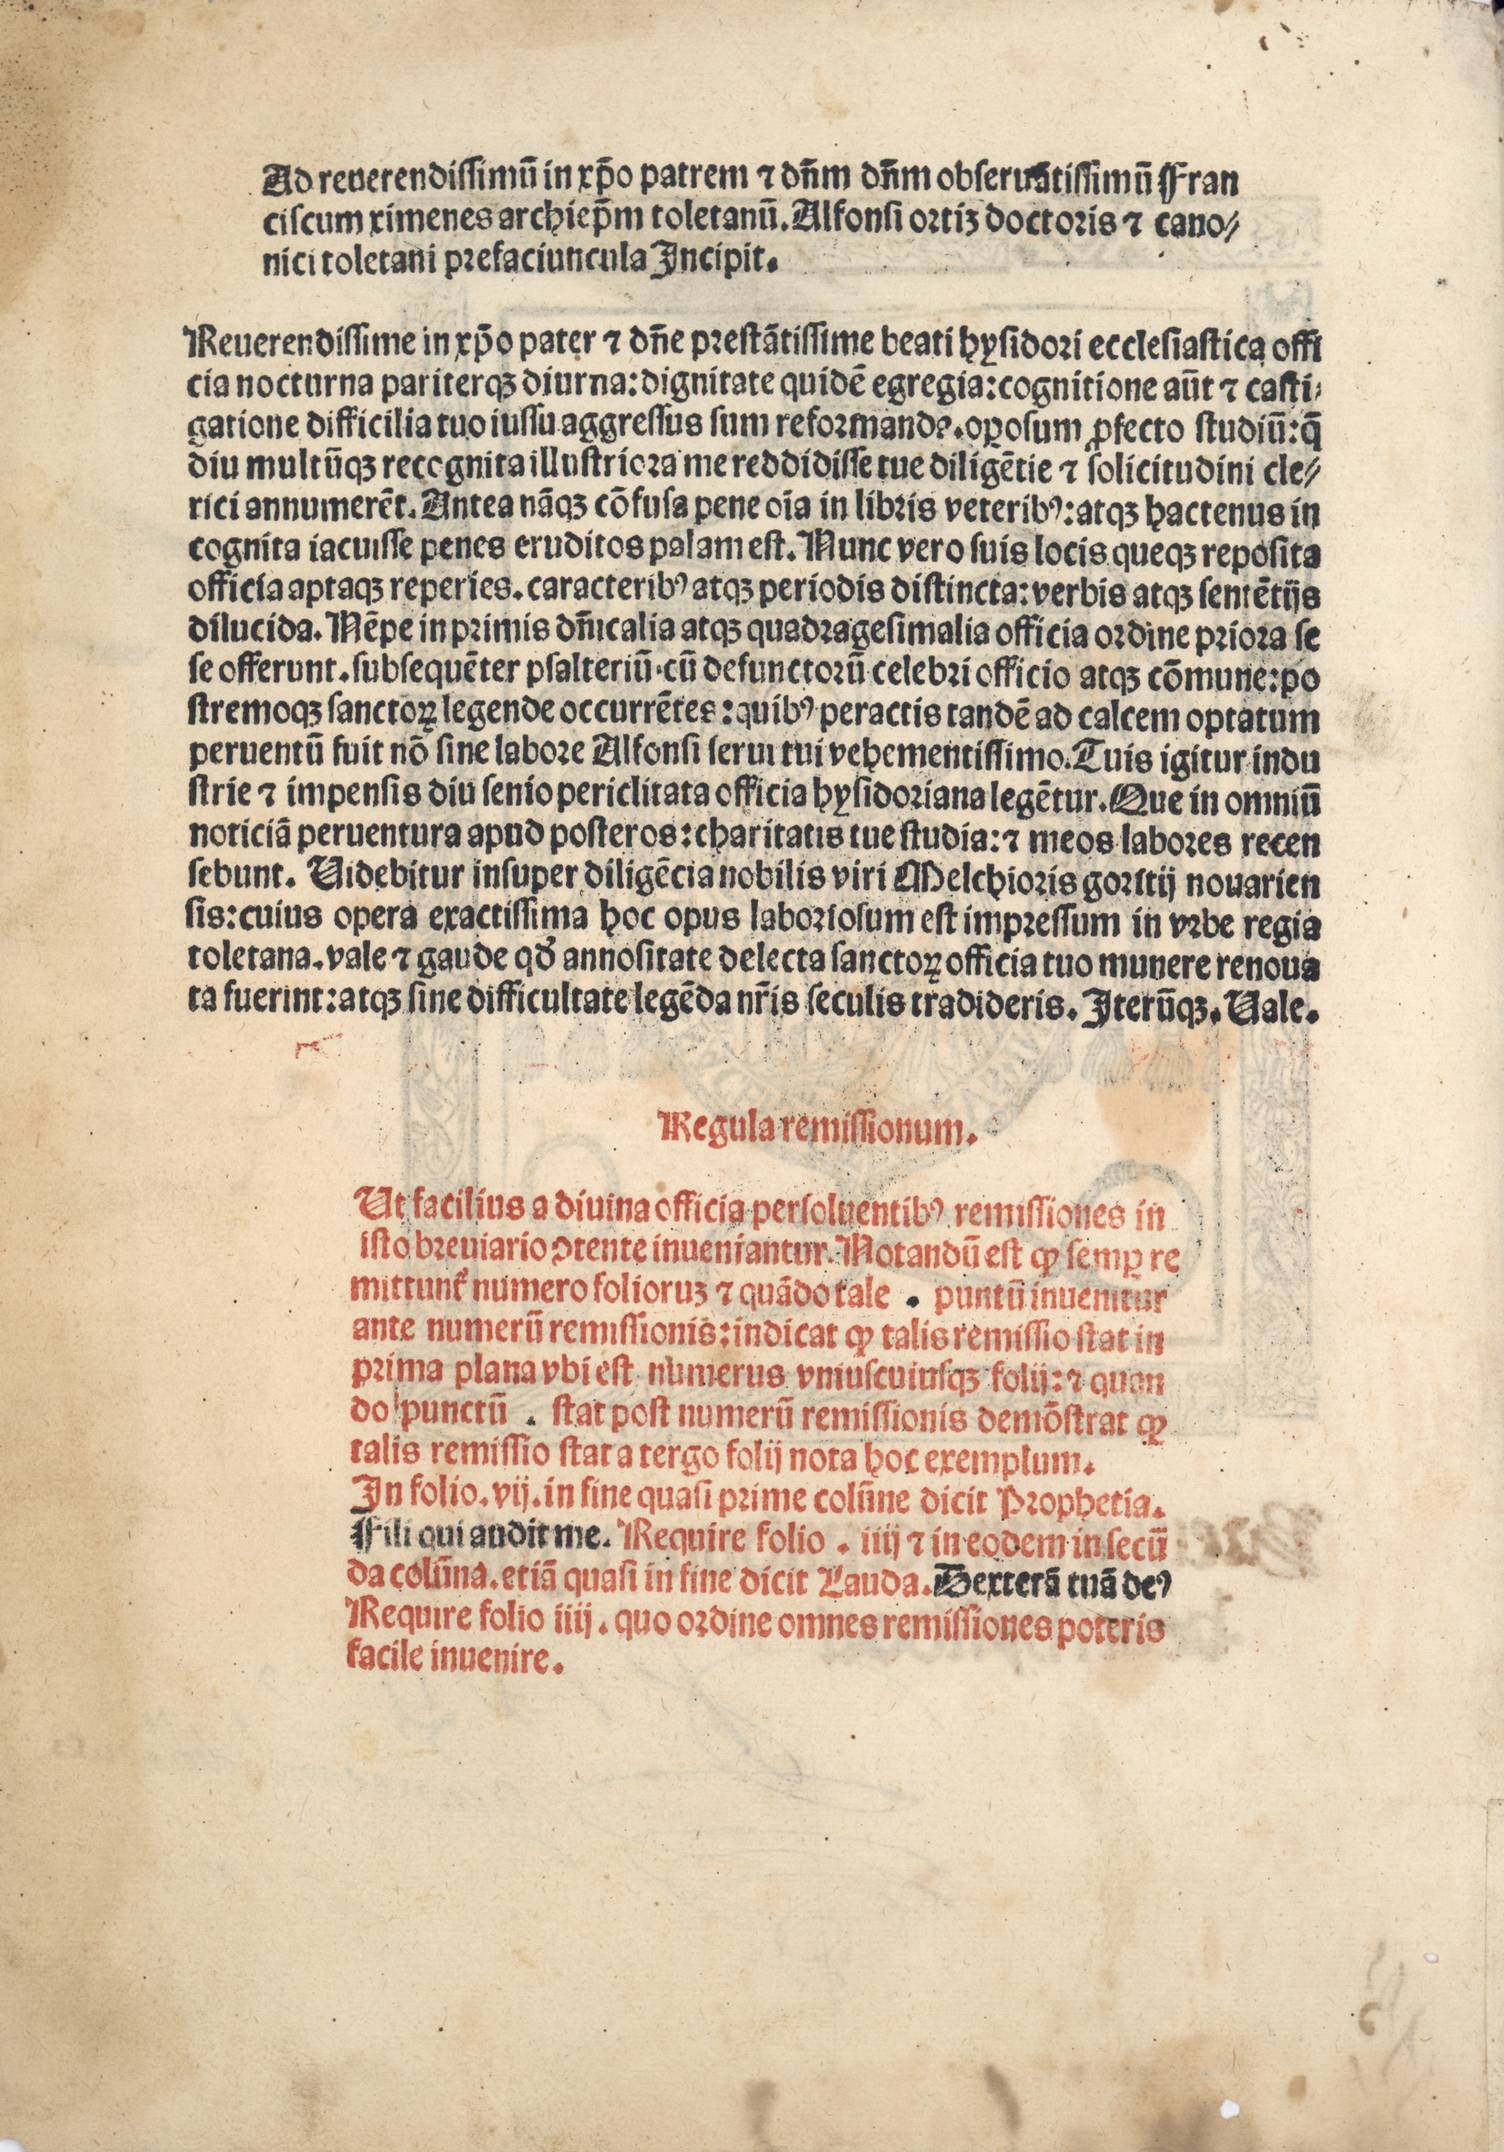 Ad reuerendissimū in xp̄o patrem ⁊ dn̄m dn̄m obseruātissimū Fran
ciscum ximenes archiep̄m toletanū. Alfonsi ortiz doctoris ⁊ cano⸗
nici toletani prefaciuncula Incipit.
Reuerendissime in xp̄o pater ⁊ dn̄e prestātissime beati hysidori ecclesiastica offi
cia nocturna pariterqꝫ diurna: dignitate quidē egregia: cognitione aūt ⁊ casti⸗
gatione difficilia tuo iussu aggressus sum reformanda. oꝑosum ꝓfecto studiū: q̄
diu multūqꝫ recognita illustriora me reddidisse tue diligētie ⁊ solicitudini cle⸗
rici annumerēt. Antea nāqꝫ cōfusa pene oīa in libris veteribꝰ: atqꝫ hactenus in
cognita iacuisse penes eruditos palam est. Nunc vero suis locis queqꝫ reposita
officia aptaqꝫ reperies. caracteribꝰ atqꝫ periodis distincta: verbis atqꝫ sentētijs
dilucida. Nēpe in primis dn̄icalia atqꝫ quadragesimalia officia ordine priora se
se offerunt. subsequēter psalteriū. cū defunctorū celebri officio atqꝫ cōmune: po
stremoqꝫ sanctoꝝ legende occurrētes: quibꝰ peractis tandē ad calcem optatum
peruentū fuit nō sine labore Alfonsi serui tui vehementissimo. Tuis igitur indu
strie ⁊ impensis diu senio periclitata officia hysidoriana legētur. Que in omniū
noticiā peruentura apud posteros: charitatis tue studia: ⁊ meos labores recen
sebunt. Uidebitur insuper diligēcia nobilis viri Melchioris goricij nouarien
sis: cuius opera exactissima hoc opus laboriosum est impressum in vrbe regia
toletana. vale ⁊ gaude qđ annositate delecta sanctoꝝ officia tuo munere renoua
ta fuerint: atqꝫ sine difficultate legēda nr̄is seculis tradideris. Iterūqꝫ. Uale.
Regula remissionum.
Ut facilius a diuina officia persoluentibꝰ remissiones in
isto breuiario ꝯtente inueniantur. Notandū est ꝙ semꝑ re
mittunt᷑ numero folioruꝫ ⁊ quādo tale . puntū inuenitur
ante numerū remissionis: indicat ꝙ talis remissio stat in
prima plana vbi est numerus vniuscuiusqꝫ folij: ⁊ quan
do punctū . stat post numerū remissionis demōstrat ꝙ
talis remissio stat a tergo folij nota hoc exemplum.
In folio. vij. in fine quasi prime colūne dicit Prophetia.
Fili qui audit me. Require folio . iiij ⁊ in eodem in secū
da colūna. etiā quasi in fine dicit Lauda. Dexterā tuā deꝰ
Require folio iiij . quo ordine omnes remissiones poteris
facile inuenire.